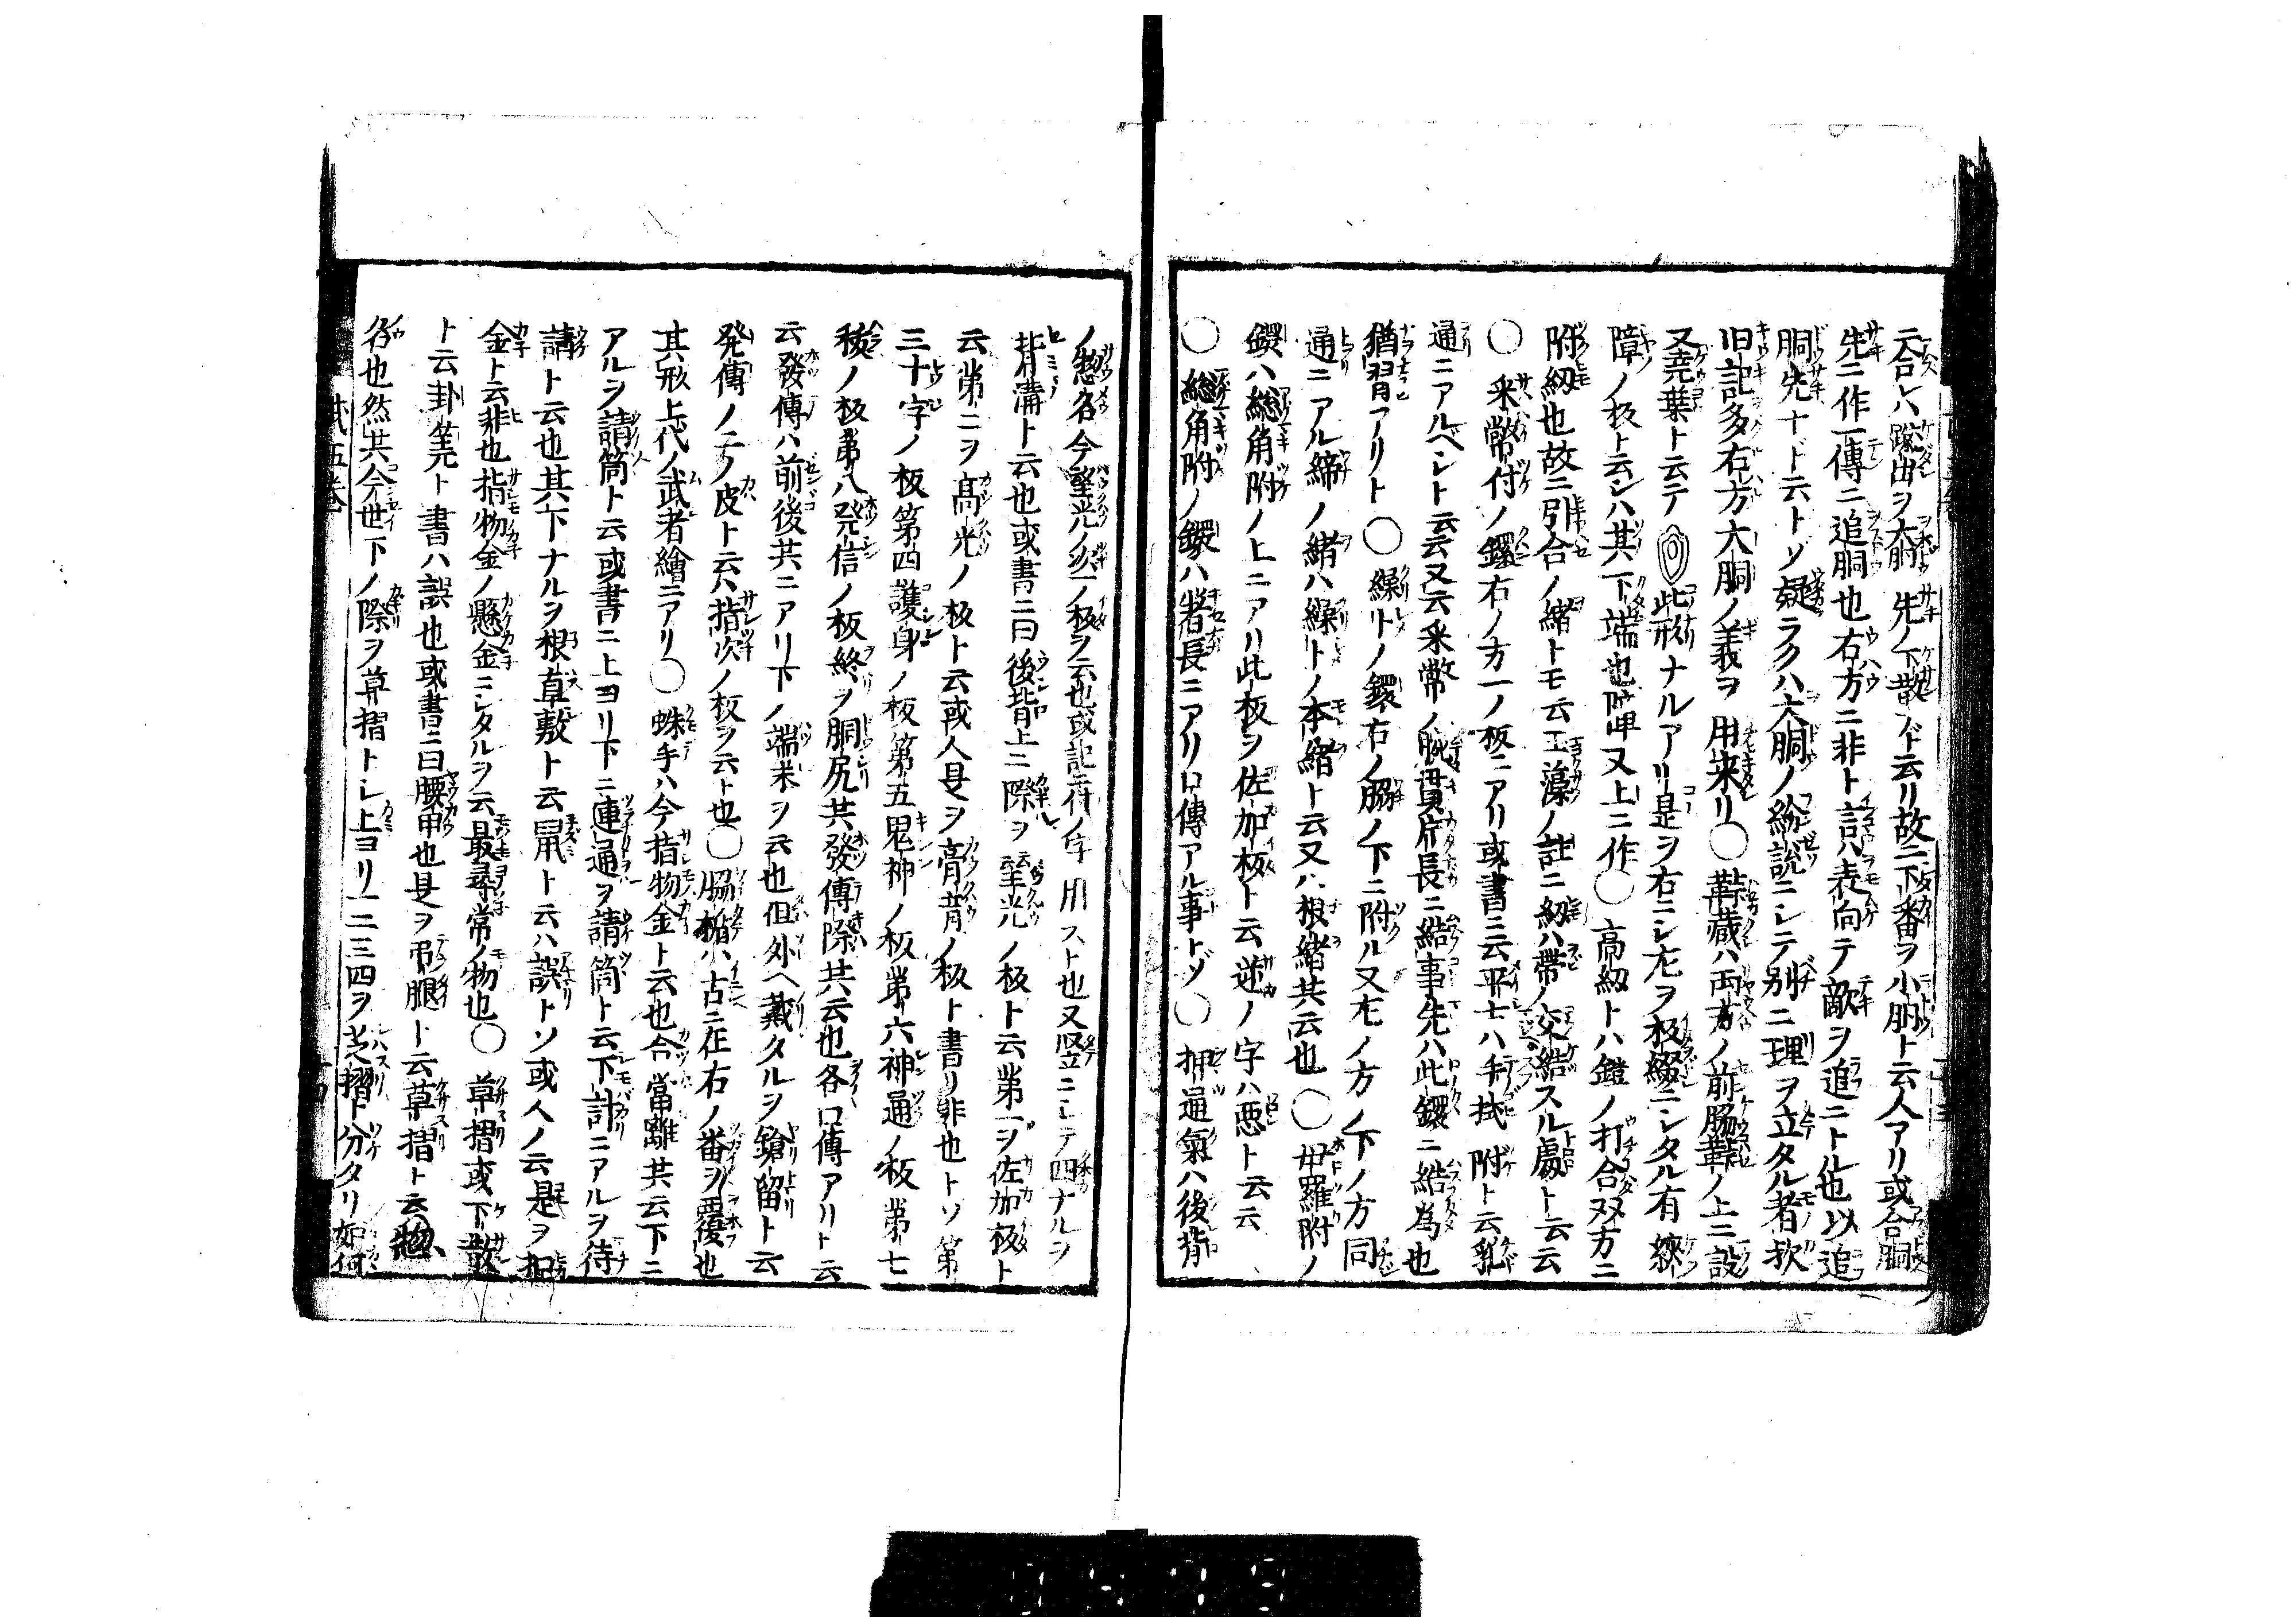 云合レハ蹤出ヲ大胴先ノ下散ド云リ故ニ下番ヲ小胴ト云人アリ或合胴
先ニ作一傳ニ追胴也右方ニ非ト訁ハ表向テ敵ヲ追ニトル也以追
胴先ナドト云トゾ疑ラクハ大胴ノ紛説ニシテ別ニ理ヲ立タル者欤
旧記多右方大胴ノ義ヲ用来リ○鞐蔵ハ両方ノ前脇韋ノ上ニ設
又尭葉ト云テ此形ナルアリ是ヲ右ニシ左ヲ板綴ニシタル有
障ノ板ト云シハ其下端也又上ニ作○高紐トハ鎧ノ打合双方ニ
附紐也故ニ引合ノ緒トモ云玉藻ノ註ニ紐ハ帯ノ交結スル處ト云云
○采幣付ノ鐶右ノ方一ノ板ニアリ或書ニ云平士ハ手拭附ト云乱
通ニアルベシト云云又云采幣ノ腕貫肩長ニ結事先ハ此鐶ニ結為也
猶習アリト○繰トノ鐶右ノ脇ノ下ニ附ル又左ノ方ノ下ノ方同
通ニアル締ノ緒ハ繰トノ本緒ト云又ハ根緒共云也○母羅附ノ
鐶ハ総角附ノ上ニアリ此板ヲ佐加板ト云逆ノ字ハ悪ト云云
○総角附ノ鐶ハ著長ニアリ口傳アル事トゾ○押通氣ハ後背
ノ惣名今堅光ノ一ノ板ヲ云也或記ニ行ノ字用ストモ又竪ニシテ四ナルヲ
背溝ト云也或書ニ曰後背上ニ際ヲ云至光ノ板ト云第一ヲ佐加板ト
云第二ヲ高光ノ板ト云或人是ヲ膏肓ノ板ト書リ非也トソ第
三十字ノ板第四護身ノ板第五鬼神ノ板第六神通ノ板第七
ノ板第八発信ノ板終ヲ胴尻共發傳際共云也各口傳アリト云
云發傳ハ前後共ニアリ下ノ端末ヲ云也但外ヘ戴タルヲ鎗留ト云
発傳ノ一ノ皮ト云ハ指次ノ板ヲ云ト也○脇楯ハ古ニ在右ノ番ヲ覆也
其形上代ノ武者繪ニアリ○蛛手ハ今指物金ト云也合當離共云下ニ
アルヲ請筒ト云或書ニ上ヨリ下ニ連通ヲ請筒ト云下計ニアルヲ待
請ト云也其下ナルヲ根草敷ト云鼠ト云ハ誤トソ或人ノ云是ヲ
金ト云非也指物金ノ懸金ニシタルヲ云最尋常ノ物也○草摺或下散
ト云卦筭ト書ハ誤也或書ニ曰腰甲也是ヲ吊腿ト云草摺ト云惣
名也然共今世下ノ際ヲ草摺トシ上ヨリ一二三四ヲ芝摺ト分タリ如何